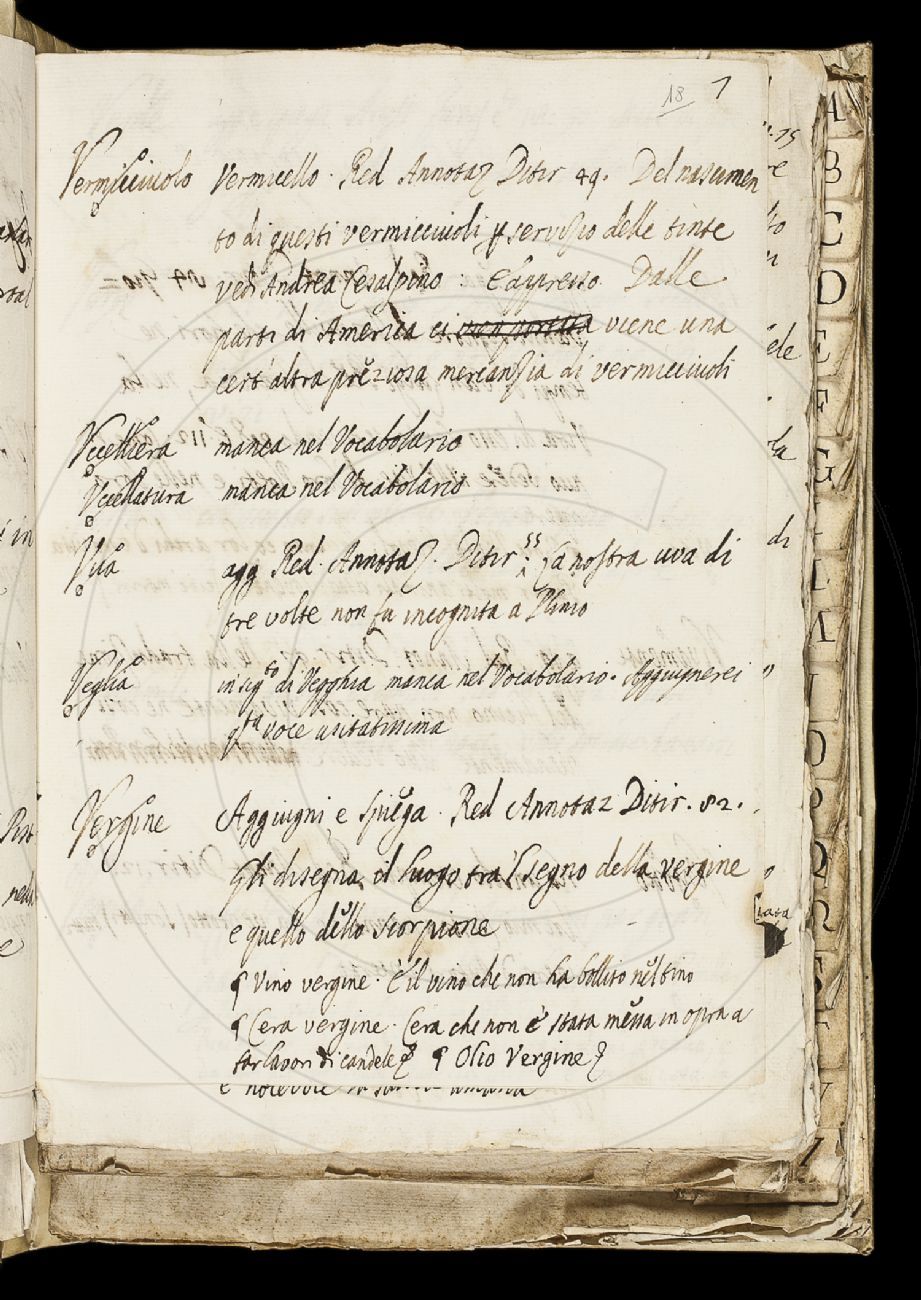 18 7
Vermicciuolo Vermicello. Red Annotaz Ditir 49. Del nascimen
to di questi vermicciuoli p servizio delle tinte
vedi Andrea Cesalpino : E appresso Dalle
parti di America ci viene una
cert'altra preziosa mercanzia di vermicciuoli
Vccelliera manca nel Vocabolario
Vccellatura manca nel Vocabolario
Vua agg Red. Annotaz. Ditir 55 La nostra uva di
tre volte non fu incognita a Plinio
Veglia in sigto di Vegghia manca nel Vocabolario. Aggiugnerei
qta voce usitatissima
Vergine Aggiugni e spiega. Red Annotaz Ditir. 82.
Gli disegna il luogo tra'l segno della vergine
e quello dello scorpione
¶ Vino vergine. È il vino che non ha bollito nel tino
¶ Cera vergine. Cera che non è stata messa in opra a
far lavori di candele ¶ Olio Vergine
A
B
C
D
E
F
G